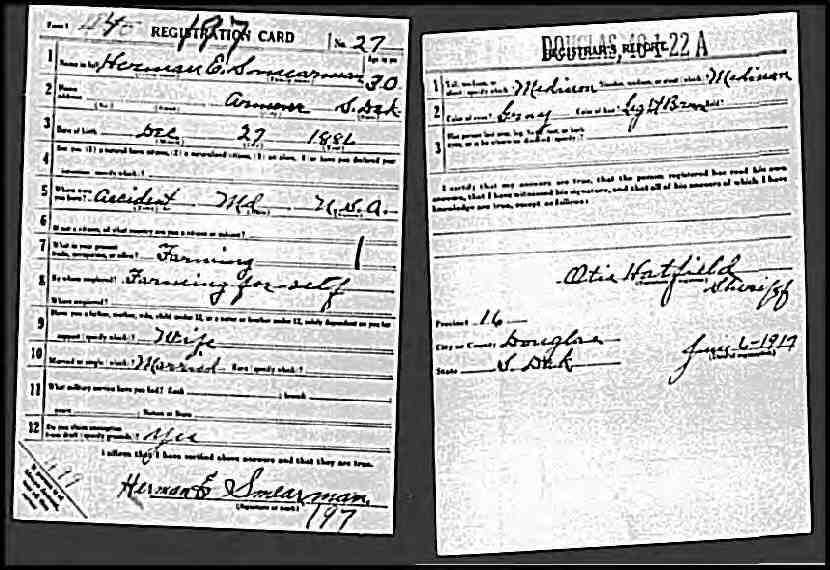 Form 1
REGISTRATION CARD
197
No. 27
Age in yrs
1 Name in full Herman E. Smearman 30
2 Home address Armour S. Dak
3 Date of birth Dec 27 1886
4 Are you (1) a natural born citizen, (2) a naturalized citizen, (3) an alien, (4) or have you declared your
intention (specify which)?
5 Where were you born? Accident Md. U.S.A.
6 If not a citizen, of what country are you a citizen or subject?
7 What is your present trade, occupation, or office? Farming
8 By whom employed? Farming for self
Where employed?
9 Have you a father, mother, wife, child under 12, or a sister or brother under 12, solely dependent on you for
support (specify which)? Wife
10 Married or single (which)? Married Race (specify which)?
11 What military service have you had? Rank ; branch
years ; Nation or State
12 Do you claim exemption from draft (specify grounds)? Yes
I affirm that I have verified above answers and that they are true.
Herman E Smearman
(Signature or mark)
197
DOUGLAS, 40-1-22 A
REGISTRAR'S REPORT
1 Tall, medium, or short (specify which)? Medium Slender, medium, or stout (which)? Medium
2 Color of eyes? Gray Color of hair? Lig't Brn Bald?
3 Has person lost arm, leg, hand, foot, or both eyes, or is he otherwise disabled (specify)?
I certify that my answers are true, that the person registered has read his own
answers, that I have witnessed his signature, and that all of his answers of which I have
knowledge are true, except as follows:
Otis Hatfield
Sheriff
Precinct 16
City or County Douglas
State S. Dak
June 6-1917
(Date of registration)